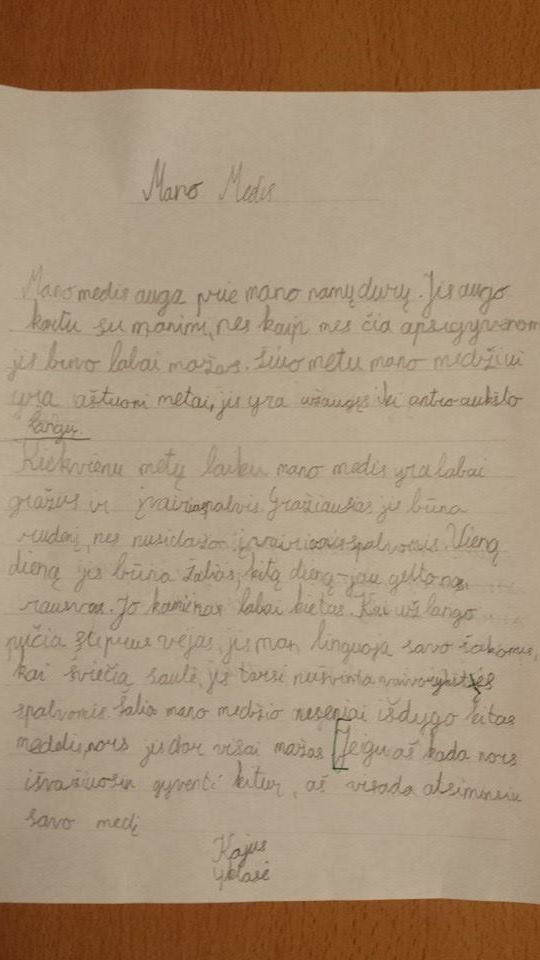 Mano Medis
Mano medis auga prie mano namų durų. Jis augo
kartu su manimi, nes kaip mes čia apsigyvenom
jis buvo labai mažas. Šiuo metu mano medžiui
yra aštuoni metai, jis yra užaugęs iki antro aukšto
langų.
Kiekvienu metų laiku mano medis yra labai
gražus ir įvairiaspalvis. Gražiausias jis būna
rudenį, nes nusidažo įvairiomis spalvomis. Vieną
dieną jis būna žalias, kitą dieną - jau geltonas,
rausvas. Jo kamienas labai kietas. Kai už lango
pučia stiprus vėjas, jis man linguoja savo šakomis,
kai šviečia saulė, jis tarsi nušvinta vaivorykštės
spalvomis. Šalia mano medžio neseniai išdygo kitas
medelis, nors jis dar visai mažas. Jeigu aš kada nors
išvažiuosiu gyventi kitur, aš visada atsiminsiu
savo medį
Kajus
4 klasė